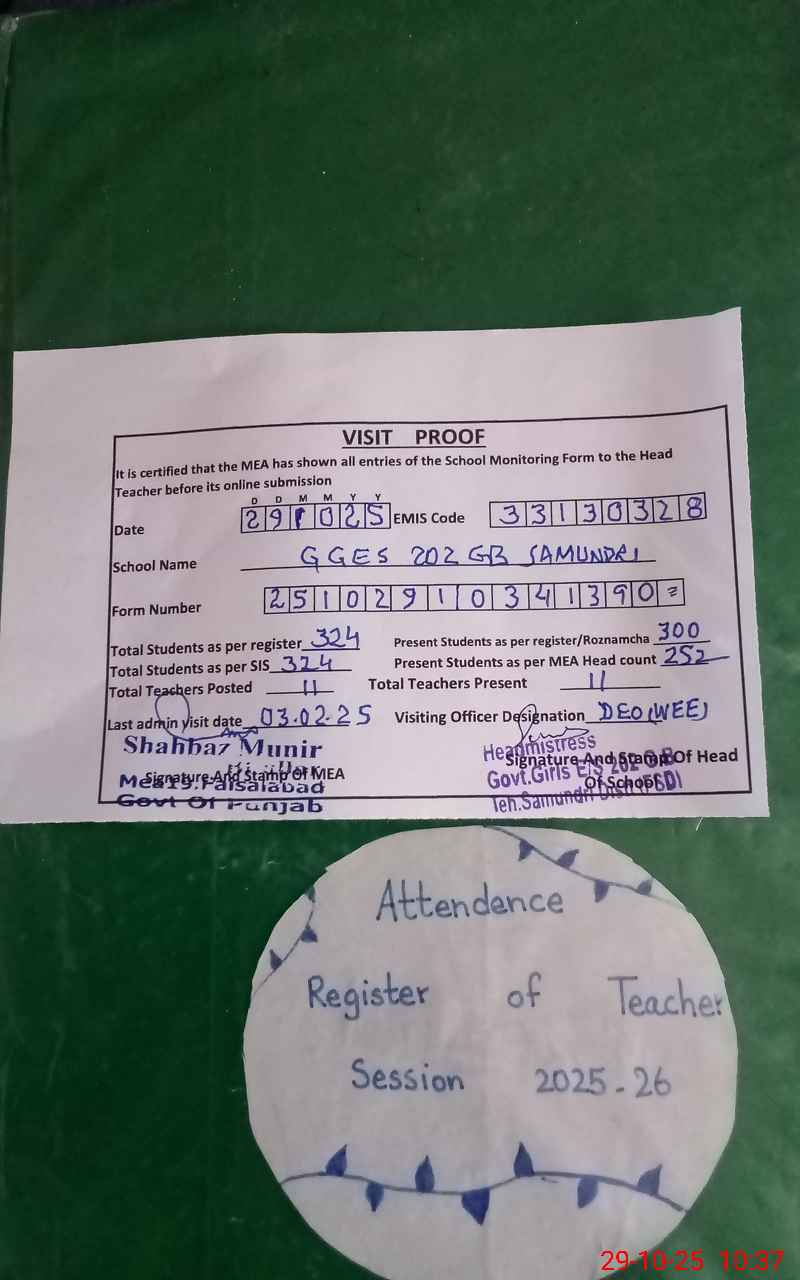 VISIT PROOF
It is certified that the MEA has shown all entries of the School Monitoring Form to the Head
Teacher before its online submission
D D M M Y Y
Date 291025 EMIS Code 33130328
School Name GGES 202 GB SAMUNDRI
Form Number 2510291034139 0
Total Students as per register 324 Present Students as per register/Roznamcha 300
Total Students as per SIS 324 Present Students as per MEA Head count 252
Total Teachers Posted 11 Total Teachers Present 11
Last admin visit date 03.02.25 Visiting Officer Designation DEO(WEE)
Shahbaz Munir
Signature And Stamp Of MEA
Mea19.Faisalabad
Govt Of Punjab
Headmistress
Signature And Stamp Of Head
Of School
Govt.Girls E/S 202 G.B
Teh.Samundri
Attendence
Register of Teacher
Session 2025-26
29-10-25 10:37